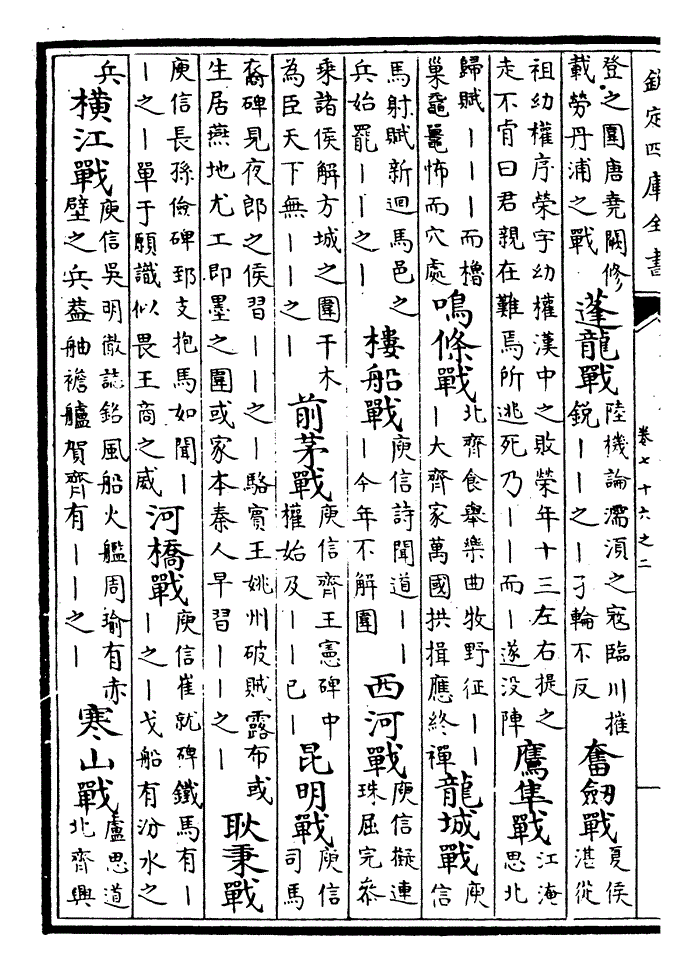 欽定四庫全書
卷七十六之二
登之圍唐堯闕修載勞丹浦之戰蓬龍戰陸機論濡湏之寇臨川摧銳丨丨之丨孑輪不反奮劒戰夏侯湛從
祖幼權序榮字幼權漢中之敗榮年十三左右提之走不肯曰君親在難焉所逃死乃丨丨而丨遂没陣鷹隼戰江淹思北
歸賦丨丨丨而櫓巢黿鼉怖而穴處鳴條戰北齊食舉樂曲牧野征丨丨丨大齊家萬國拱揖應終禪龍城戰庾信
馬射賦新迴馬邑之兵始罷丨丨之丨樓船戰庾信詩聞道丨丨丨今年不解圍西河戰庾信擬連珠屈完參
乘諸侯解方城之圍干木為臣天下無丨丨之丨前茅戰庾信齊王憲碑中權始及丨丨已丨昆明戰庾信司馬
裔碑見夜郎之侯習丨丨之丨駱賓王姚州破賊露布或生居燕地尤工即墨之圍或家本秦人早習丨丨之丨耿秉戰
庾信長孫儉碑郅支抱馬如聞丨丨之丨單于願識似畏王商之威河橋戰庾信崔就碑鐵馬有丨丨之丨戈船有汾水之
兵橫江戰庾信吳明徹誌銘風船火艦周瑜有赤壁之兵葢舳襜艫賀齊有丨丨之丨寒山戰盧思道北齊興